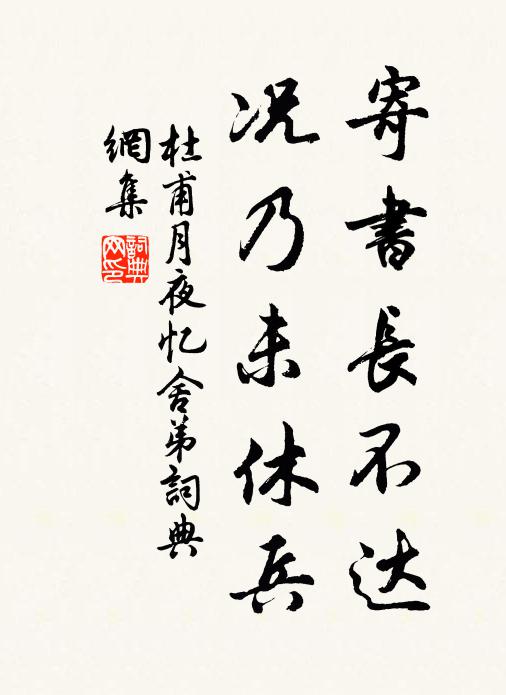 寄書長不达
况乃未休兵
杜甫月夜忆舍弟詞典
網集
詞典
网印